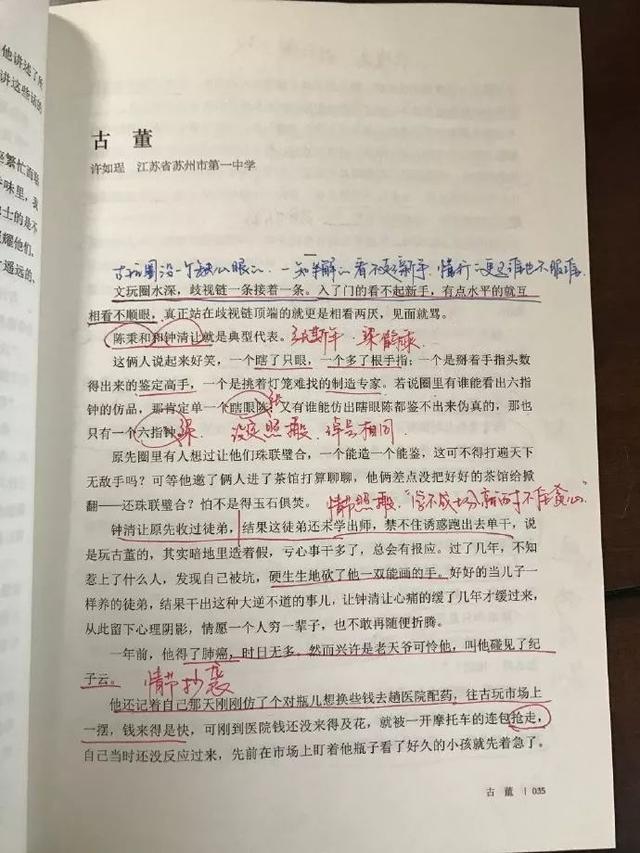 他讲述了所
讲这些话的
古 董
许如珵 江苏省苏州市第一中学
一
文玩圈水深，歧视链一条接着一条。入了门的看不起新手，有点水平的就互
相看不顺眼，真正站在歧视链顶端的就更是相看两厌，见面就骂。
陈秉和和钟清让就是典型代表。
这俩人说起来好笑，一个瞎了只眼，一个多了根手指；一个是掰着手指头数
得出来的鉴定高手，一个是挑着灯笼难找的制造专家。若说圈里有谁能看出六指
钟的仿品，那肯定单一个瞎眼陈；又有谁能仿出瞎眼陈都鉴不出来伪真的，那也
只有一个六指钟。
设定照搬 绰号相同
原先圈里有人想过让他们珠联璧合，一个能造一个能鉴，这可不得打遍天下
无敌手吗？可等他邀了俩人进了茶馆打算聊聊，他俩差点没把好好的茶馆给掀
翻——还珠联璧合？怕不是得玉石俱焚。
情节照搬
钟清让原先收过徒弟，结果这徒弟还未学出师，禁不住诱惑跑出去单干，说
是玩古董的，其实暗地里造着假，亏心事干多了，总会有报应。过了几年，不知
惹上了什么人，发现自己被坑，硬生生地砍了他一双能画的手。好好的当儿子一
样养的徒弟，结果干出这种大逆不道的事儿，让钟清让心痛的缓了几年才缓过来，
从此留下心理阴影，情愿一个人穷一辈子，也不敢再随便折腾。
一年前，他得了肺癌，时日无多，然而兴许是老天爷可怜他，叫他碰见了纪
子云。
情节抄袭
他还记着自己那天刚刚仿了个对瓶儿想换些钱去趟医院配药，往古玩市场上
一摆，钱来得是快，可刚到医院钱还没来得及花，就被一开摩托车的连包抢走，
自己当时还没反应过来，先前在市场上盯着他瓶子看了好久的小孩就先着急了。
古 董 | 035